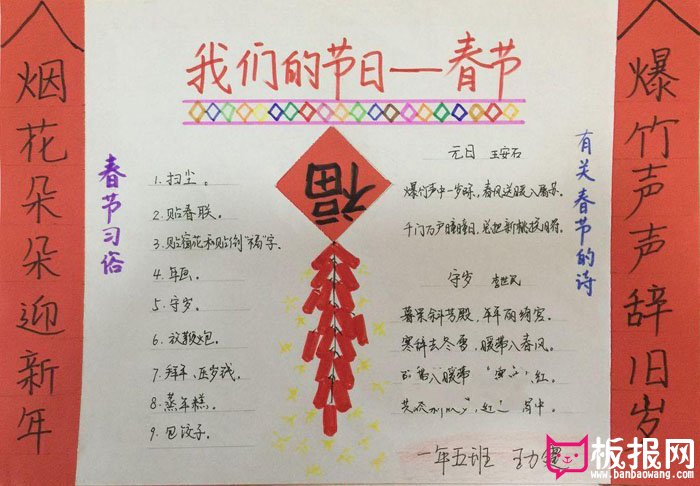 我们的节日——春节
爆竹声声辞旧岁
烟花朵朵迎新年
春节习俗
1. 扫尘。
2. 贴春联。
3. 贴窗花和贴倒“福”字。
4. 年画。
5. 守岁。
6. 放鞭炮。
7. 拜年、压岁钱。
8. 蒸年糕。
9. 包饺子。
福
有关春节的诗
元日 王安石
爆竹声中一岁除，春风送暖入屠苏。
千门万户曈曈日，总把新桃换旧符。
守岁 李世民
暮景斜芳殿，年年丽绮宫。
寒辞去冬雪，暖带入春风。
一年五班
板报网
www.banbaowang.com